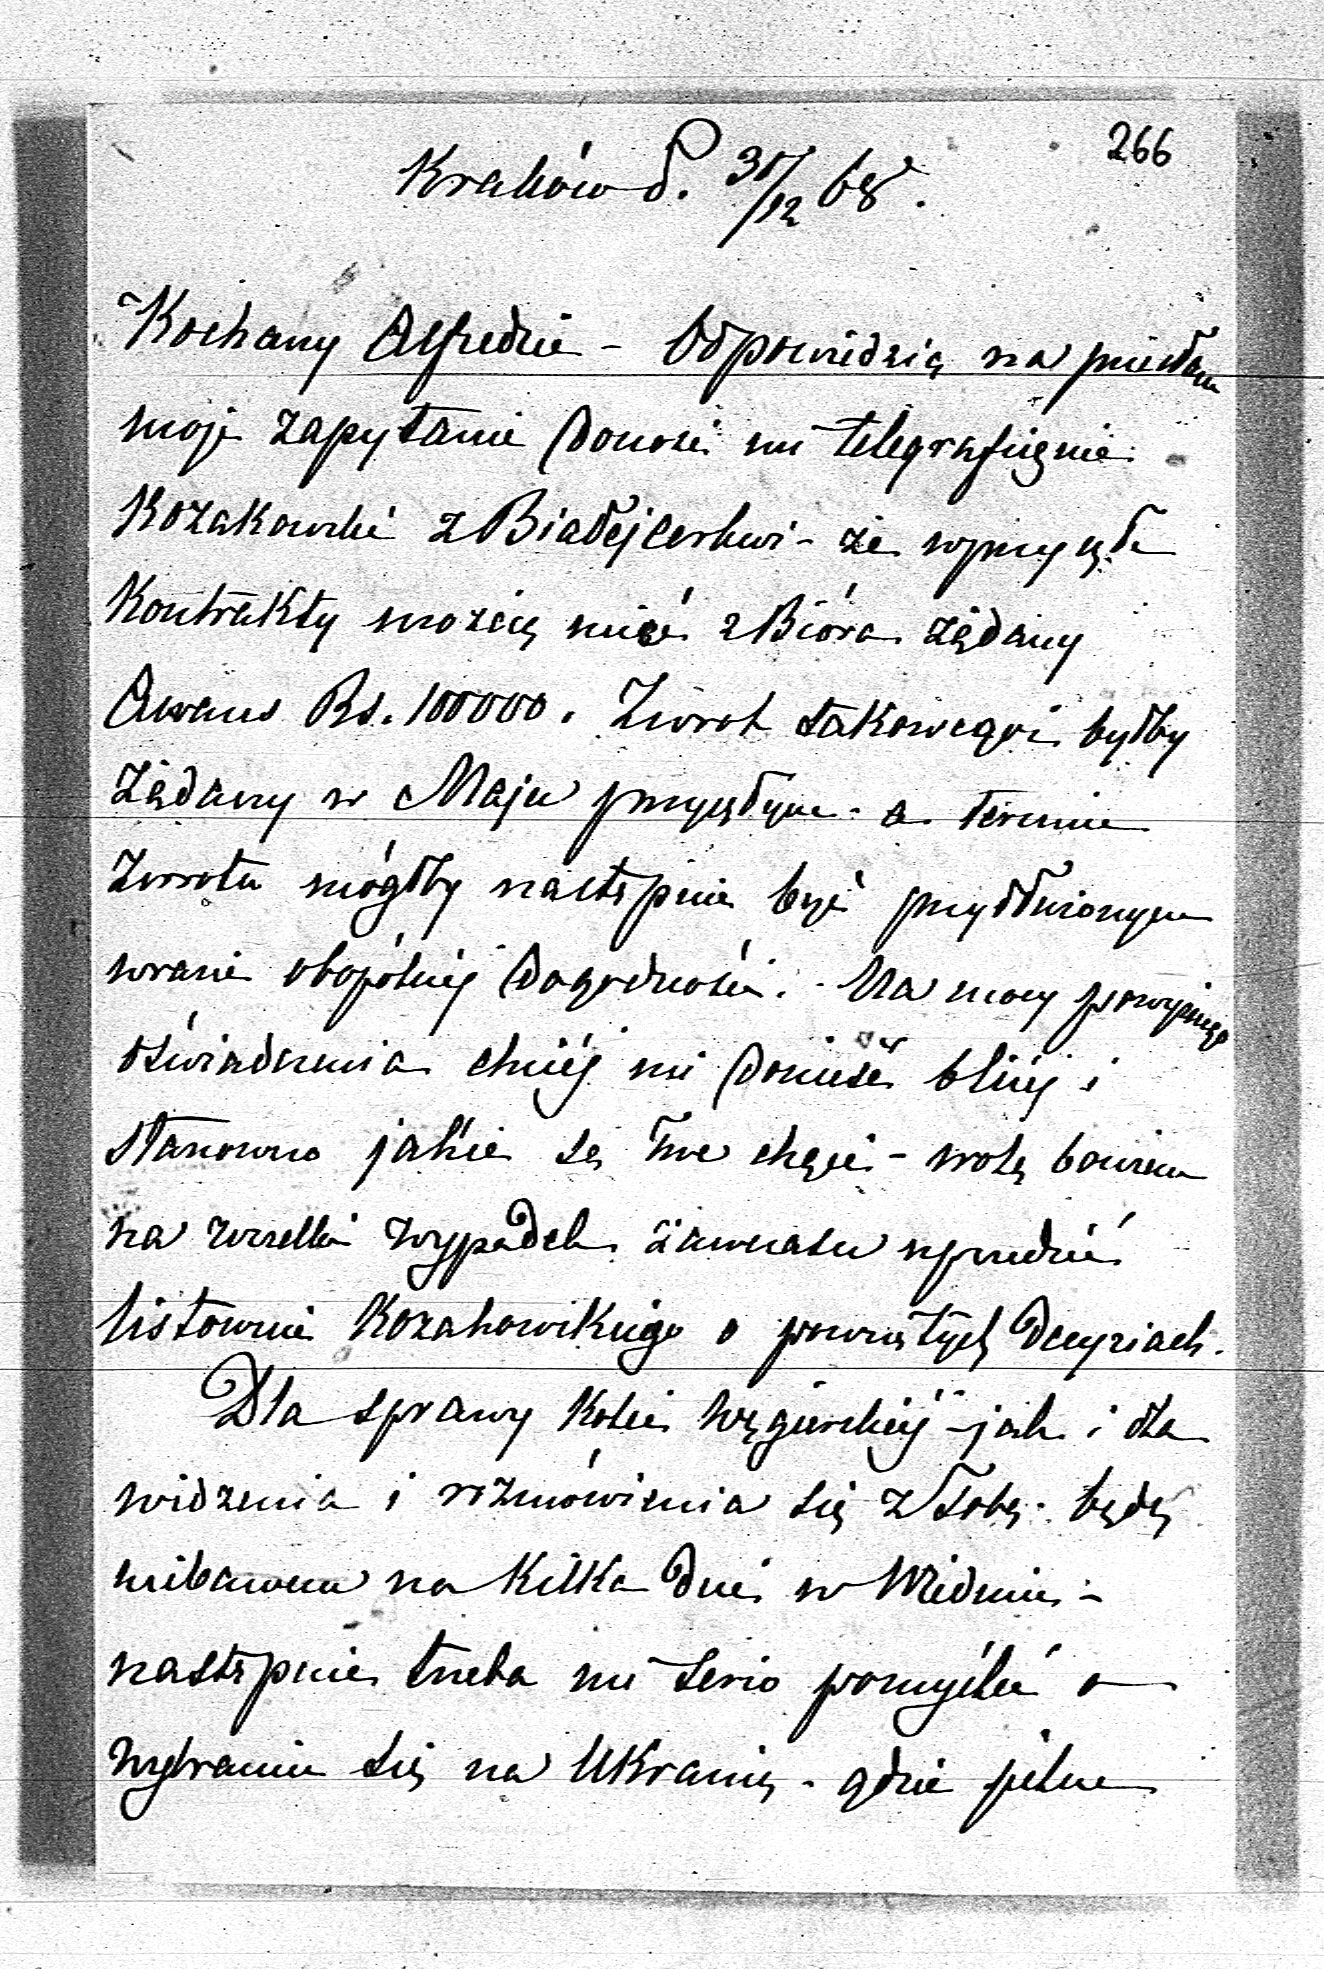 266
Kraków d. 30/12 68.
Kochany Alfredzie – Odpowiedzią na przesłane
moje zapytanie donosi mi telegraficznie
Kozakowski z Białejcerkwi – że w przyszłe
Kontrakty możesz mieć z Bióra żądany
Awans Rs. 100000. Zwrot takowegoż byłby
żądany w Maju przyszłym – a termin
zwrotu mógłby następnie być przedłużonym
wrazie obopólnej dogodności. – Na mocy powyższego
oświadczenia chciej mi donieść bliżej i
stanowczo jakie są twe chęci – wolę bowiem
na wszelki wypadek zawczasu uprzedzić
listownie Kozakowskiego o powziętych decyziach.
Dla sprawy Kolei Węgierskiej – jak i dla
widzenia i rozmówienia się z Tobą – będę
niebawem na kilka dni w Wiedniu –
następnie trzeba mi serio pomyśleć o
wybraniu się na Ukrainę – gdzie pilne